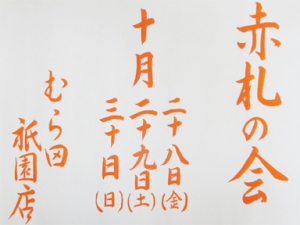 赤札の会
十月
二十八日(金)
二十九日(土)
三十日(日)
むら田
祇園店